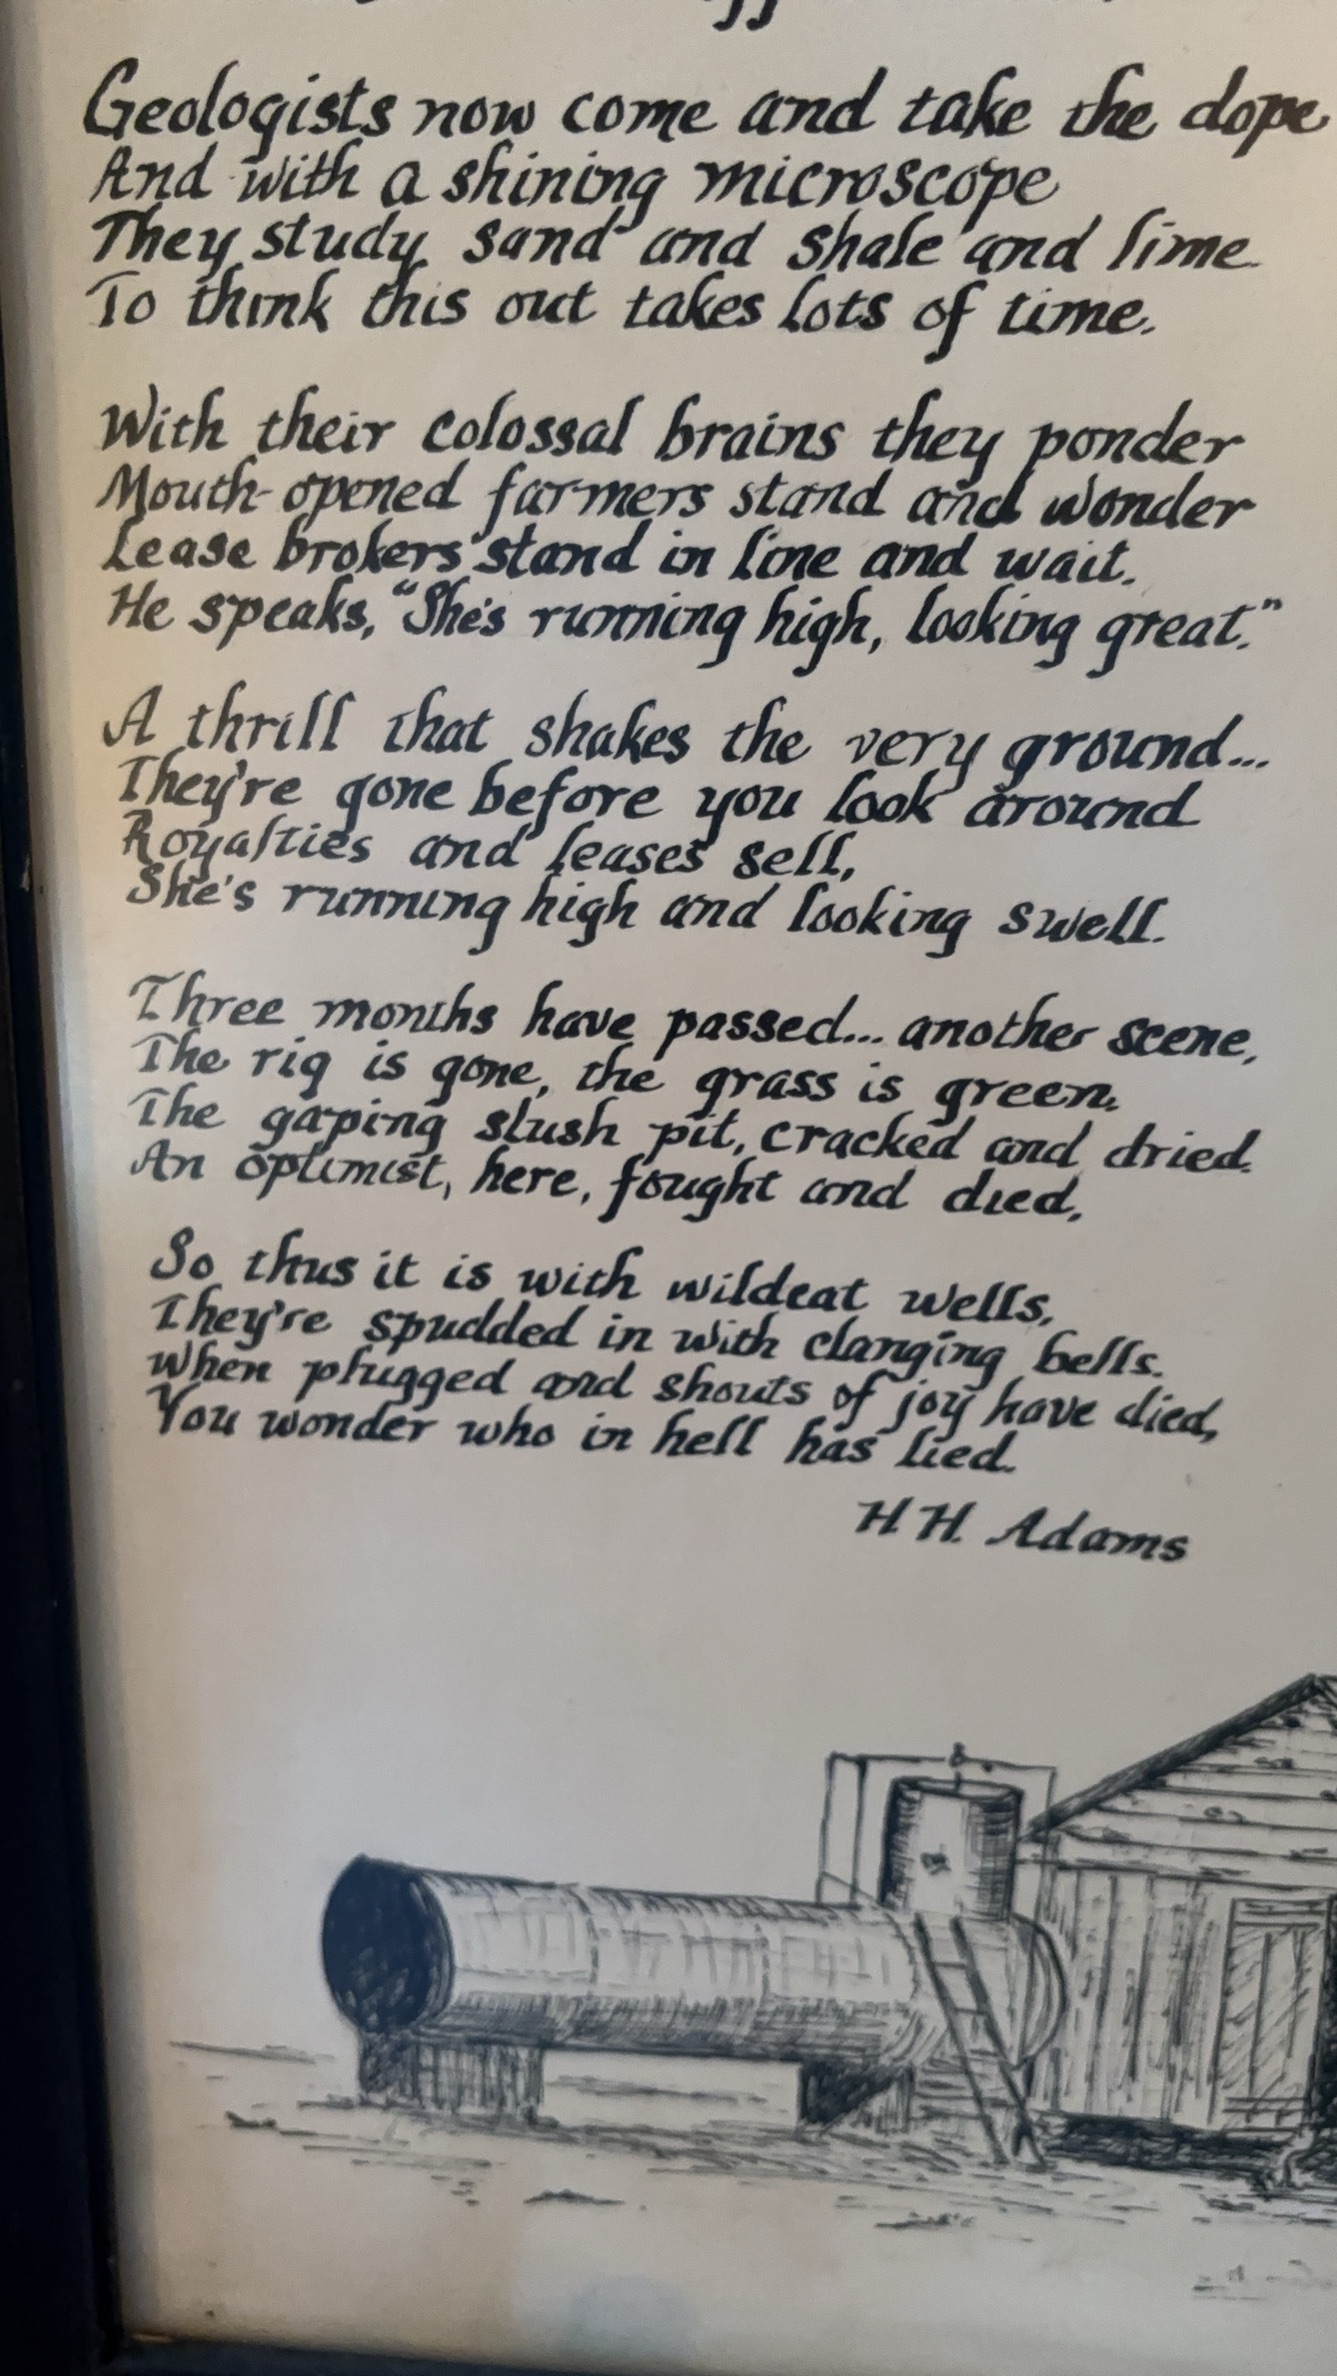 Geologists now come and take the dope
And with a shining microscope
They study sand and shale and lime.
To think this out takes lots of time.
With their colossal brains they ponder
Mouth-opened farmers stand and wonder
Lease brokers stand in line and wait.
He speaks, "She's running high, looking great."
A thrill that shakes the very ground...
They're gone before you look around
Royalties and leases sell,
She's running high and looking swell.
Three months have passed... another scene,
The rig is gone, the grass is green.
The gaping slush pit, cracked and dried.
An optimist, here, fought and died.
So thus it is with wildcat wells,
They're spudded in with clanging bells.
When plugged and shouts of joy have died,
You wonder who in hell has lied.
H.H. Adams